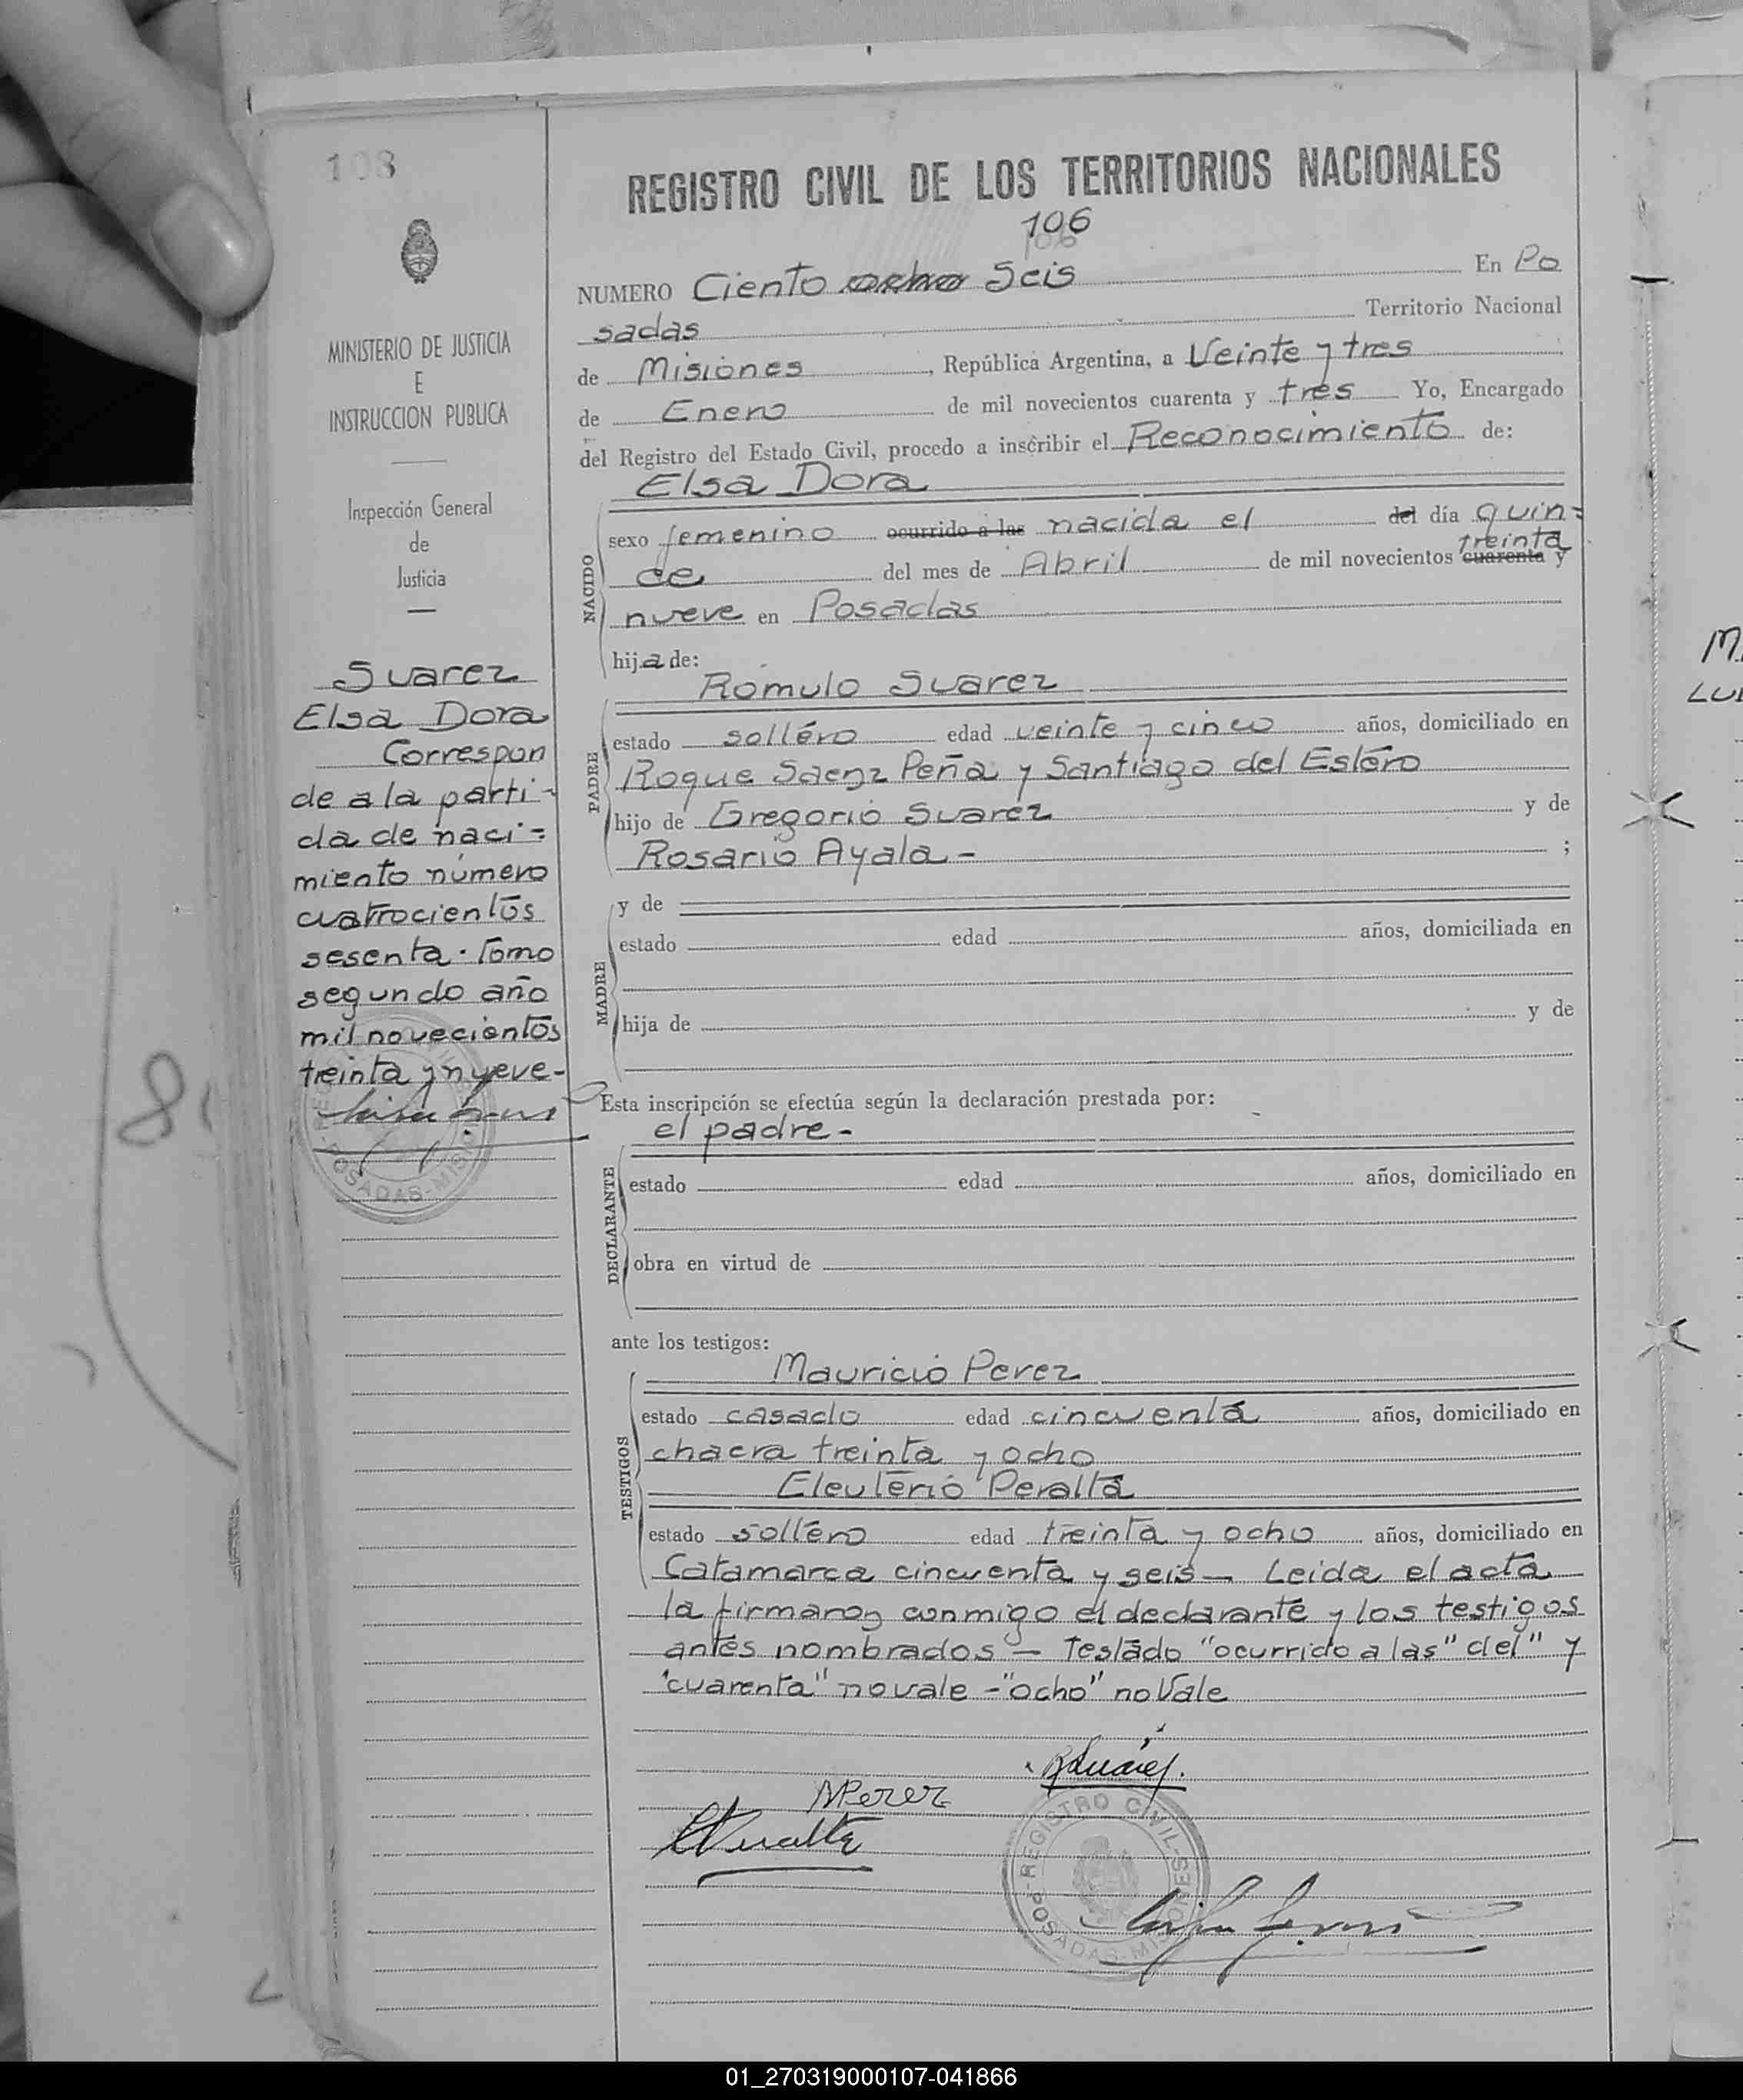 108
MINISTERIO DE JUSTICIA
E
INSTRUCCION PUBLICA
Inspección General
de
Justicia
Suarez
Elsa Dora
Correspon
de a la parti-
da de naci=
miento número
cuatrocientos
sesenta. Tomo
segundo año
mil novecientos
treinta y nueve-
REGISTRO CIVIL DE LOS TERRITORIOS NACIONALES
106
NUMERO Ciento ocho Seis En Po
sadas Territorio Nacional
de Misiones, República Argentina, a Veinte y tres
de Enero de mil novecientos cuarenta y tres Yo, Encargado
del Registro del Estado Civil, procedo a inscribir el Reconocimiento de:
Elsa Dora
NACIDO
sexo femenino ocurrido a las nacida el del día quin=
treinta
ce del mes de Abril de mil novecientos cuarenta y
nueve en Posadas
hija de:
Romulo Suarez
PADRE
estado soltéro edad veinte y cinco años, domiciliado en
Roque Saenz Peña y Santiago del Estéro
hijo de Gregorio Suarez y de
Rosario Ayala - ;
MADRE
y de
estado edad años, domiciliada en
hija de y de
Esta inscripción se efectúa según la declaración prestada por:
el padre-
DECLARANTE
estado edad años, domiciliado en
obra en virtud de
ante los testigos:
TESTIGOS
Mauricio Perez
estado casado edad cincuenta años, domiciliado en
chacra treinta y ocho
Eleuterio Peralta
estado soltero edad treinta y ocho años, domiciliado en
Catamarca cincuenta y seis - Leida el acta
la firmaron conmigo el declarante y los testigos
antes nombrados - Testado "ocurrido a las" del" y
"cuarenta" no vale - "ocho" no Vale
RSuárez.
MPerez
EPeralta
REGISTRO CIVIL
POSADAS-MISIONES
01_270319000107-041866